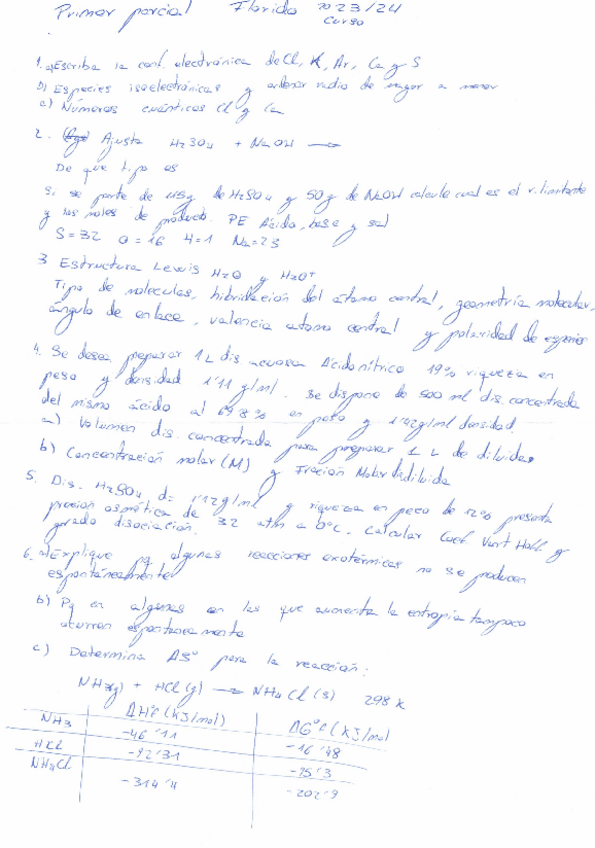 Primer parcial Florida 2023/24
curso
1. a) Escriba la conf. electrónica de Cl, K, Ar, Ca y S
b) Especies isoelectrónicas y ordenar radio de mayor a menor
c) Números cuánticos Cl y Ca
2. Ajusta H2SO4 + NaOH →
De que tipo es
Si se parte de g de H2SO4 y 50g de NaOH calcule cual es el r. limitante
y los moles de producto. PE Ácido, base y sal
S=32 O=16 H=1 Na=23
3 Estructura Lewis H2O y H3O+
Tipo de moleculas, hibridación del átomo central, geometría molecular,
ángulo de enlace, valencia atomo central y polaridad de especies
4. Se desea preparar 1L dis acuosa Ácido nítrico 19% riqueza en
peso y densidad 1'11 g/ml. Se dispone de 500 ml dis. concentrada
del mismo ácido al 69'8% en peso y 1'42g/ml densidad.
a) Volumen dis. concentrada para preparar 1 L de diluida
b) Concentración molar (M) y Fración Molar diluida
5. Dis. H2SO4 d= 1'12g/ml y riqueza en peco de 12% presenta
presion osmótica de 32 atm a 0°C. Calcular Coef. Vant Hoff y
grado disociación.
6. a) Explique pq algunas reacciones exotérmicas no se producen
espontáneamente
b) Pq en algunas en las que aumenta la entropia tampoco
ocurren espontaneamente
c) Determina ΔS° para la reacción:
NH3(g) + HCl (g) → NH4Cl (s) 298 K
ΔH°f (KJ/mol) ΔG°f (KJ/mol
NH3 -46'11 -16'48
HCl -92'31 -95'3
NH4Cl -314'4 -202'9